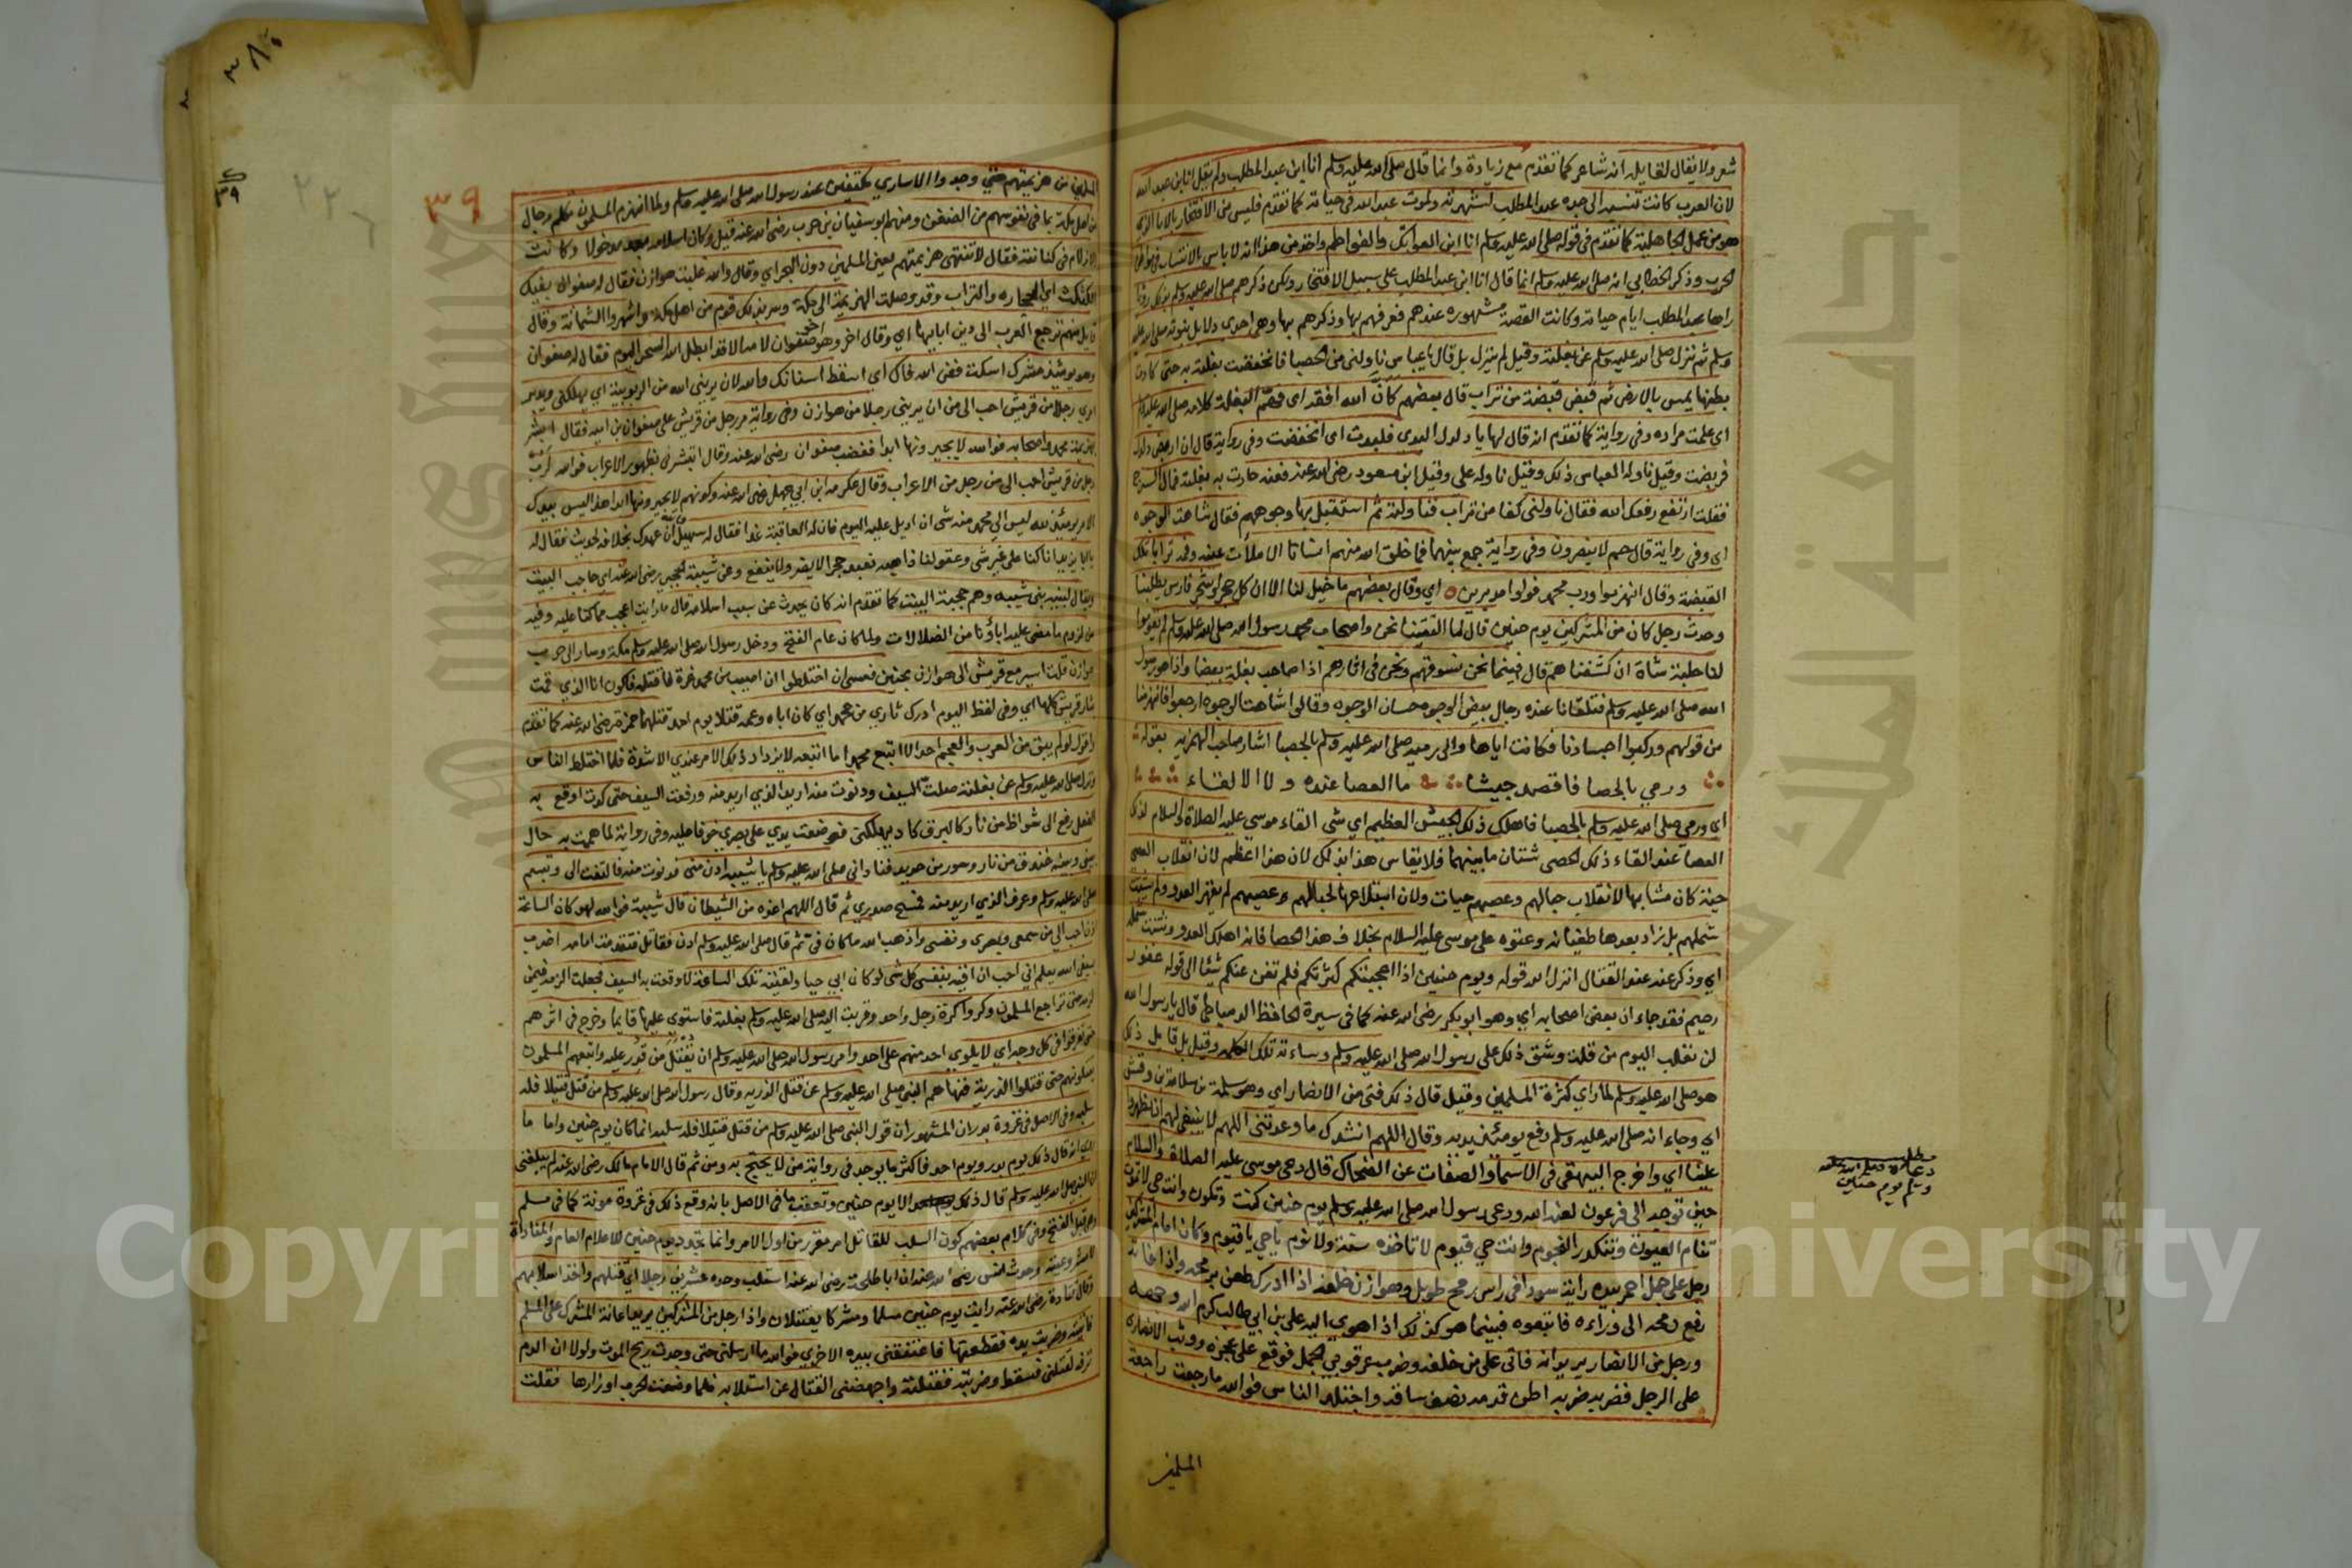 شعر ولا يقال لقايله انه شاعر كما تقدم مع زيادة وانما قال صلى الله عليه وسلم انا ابن عبد المطلب ولم يقل انا ابن عبد الله
لان العرب كانت تنسبه الى جده عبد المطلب لشهرته ولموت عبد الله في حياته كما تقدم فليس من الافتخار بالابا الذي
هو من عمل الجاهلية كما تقدم في قوله صلى الله عليه وسلم انا ابن العواتك والفواطم واخذ من هذا انه لا باس بالانتساب في مواطن
الحرب وذكر الخطابي انه صلى الله عليه وسلم انما قال انا ابن عبد المطلب لا على سبيل الافتخار ولكن ذكرهم صلى الله عليه وسلم بذلك رؤيا
راها عبد المطلب ايام حياته وكانت القصة مشهورة عندهم فعرفهم بها وذكرهم بها وهي احدى دلايل نبوته صلى الله عليه
وسلم ثم نزل صلى الله عليه وسلم عن بغلته وقيل لم ينزل بل قال يا عباس ناولني من الحصبا فانخفضت بغلته به حتى كادت
بطنها يمس بالارض ثم قبض قبضة من تراب قال بعضهم كان الله افقه اي فهّم البغلة كلامه صلى الله عليه وسلم
اي علمت مراده وفي رواية كما تقدم انه قال لها يا دلدل البدي فلبدت اي انخفضت وفي رواية قال ان اربضي دلدل
فربضت وقيل ناوله العباس ذلك وقيل ناوله علي وقيل ابن مسعود رضي الله عنه فعنه حادت به بغلته فمال السرج
فقلت ارتفع رفعك الله فقال ناولني كفا من تراب فناولته ثم استقبل بها وجوههم فقال شاهت الوجوه
اي وفي رواية قال حم لا ينصرون وفي رواية جمع بينهما فما خلق الله منهم انسانا الا ملأت عينه وفمه ترابا تلك
القبضة وقال انهزموا ورب محمد فولوا مدبرين اي وقال بعضهم ما خيل لنا الا ان كل حجر او شجر فارس يطلبنا
وحدث رجل كان من المشركين يوم حنين قال لما التقينا نحن واصحاب محمد رسول الله صلى الله عليه وسلم لم يقوموا
لنا حلبة شاة ان كشفناهم قال فبينما نحن نسوقهم ونحن في اثارهم اذا صاحب بغلة بيضا واذا هو رسول
الله صلى الله عليه وسلم فتلقانا عنده رجال بيض الوجوه حسان الوجوه وقالوا شاهت الوجوه ارجعوا فانهزمنا
من قولهم وركبوا اجسادنا فكانت اياها والى رميه صلى الله عليه وسلم بالحصبا اشار صاحب الهمزية بقوله
ورمي بالحصا فاقصد جيشا ما العصا عنده وما الالقاء
اي ورمي صلى الله عليه وسلم بالحصبا فاهلك ذلك الجيش العظيم اي شي القاء موسى عليه الصلاة والسلام لذلك
العصا عند القاء ذلك الحصى شتان ما بينهما فلا يقاس هذا بذلك لان هذا اعظم لان انقلاب العصى
حية كان مشابها لانقلاب حبالهم وعصيهم حيات ولان ابتلاعها لحبالهم وعصيهم لم يقهر العدو ولم يشتت
شملهم بل زاد بعدها طغيانه وعتوه على موسى عليه السلام بخلاف هذا الحصا فانه اهلك العدو وشتت شمله
اي وذكر عنه عند القتال انزل الله قوله ويوم حنين اذ اعجبتكم كثرتكم فلم تغن عنكم شيئا الى قوله غفور
رحيم فقد جاء ان بعض اصحابه اي وهو ابو بكر رضي الله عنه كما في سيرة الحافظ الدمياطي قال يا رسول الله
لن نغلب اليوم من قلة وشق ذلك على رسول الله صلى الله عليه وسلم وساءته تلك الكلمة وقيل بل قايل ذلك
هو صلى الله عليه وسلم لما راي كثرة المسلمين وقيل قال ذلك فتى من الانصار اي وهو سلمة بن سلامة بن وقش
اي وجاء انه صلى الله عليه وسلم رفع يومئذ يديه وقال اللهم انشدك ما وعدتني اللهم لا ينبغي لهم ان يظهروا
علينا اي واخرج البيهقي في الاسما والصفات عن الضحاك قال دعى موسى عليه الصلاة والسلام
حين توجه الى فرعون لعنه الله ودعى رسول الله صلى الله عليه وسلم يوم حنين كنت وتكون وانت حي لا تموت
تنام العيون وتنكدر النجوم وانت حي قيوم لا تاخذه سنة ولا نوم يا حي يا قيوم وكان امام المشركين
رجل على جمل احمر بيده راية سودا في راس رمح طويل وهوازن خلفه اذا ادرك طعن برمحه واذا فاته
رفع رمحه الى وراءه فاتبعوه فبينما هو كذلك اذ اهوى اليه علي بن ابي طالب كرم الله وجهه
ورجل من الانصار يريدانه فاتى علي من خلفه وضرب عرقوبي الجمل فوقع على عجزه ووثب الانصاري
على الرجل فضربه ضربة اطن قدمه بنصف ساقه واجتلد الناس فوالله ما رجعت راجعة
المسلمين
مطلب
دعاؤه صلى الله عليه
وسلم يوم حنين
٣٩
المسلمين من هزيمتهم حتى وجدوا الاسارى مكتفين عند رسول الله صلى الله عليه وسلم ولما انهزم المسلمون تكلم رجال
من اهل مكة بما في نفوسهم من الضغن ومنهم ابو سفيان بن حرب رضي الله عنه قيل وكان اسلامه بعد مدخولا وكانت
الازلام في كنانته فقال لا تنتهي هزيمتهم يعني المسلمين دون البحر اي وقال والله غلبت هوازن فقال له صفوان بفيك
الكثكث اي الحجارة والتراب وقد وصلت الهزيمة الى مكة وسر بذلك قوم من اهل مكة واشهروا الشماتة وقال
قايل منهم ترجع العرب الى دين ابايها اي وقال اخر وهو اخو صفوان لامه الا قد ابطل الله السحر اليوم فقال له صفوان
وهو يومئذ مشرك اسكت فض الله فاك اي اسقط اسنانك والله لان يربني الله من الربوبية اي يملكني ويدبر
امري رجلا من قريش احب الى من ان يربني رجلا من هوازن وفي رواية مر رجل من قريش على صفوان بن امية فقال ابشر
بهزيمة محمد واصحابه فوالله لا يجبرونها ابدا فغضب صفوان رضي الله عنه وقال اتبشرني بظهور الاعراب فوالله لرب
رجل من قريش احب الى من رجل من الاعراب وقال عكرمة ابن ابي جهل رضي الله عنه وكونهم لا يجبرونها ابدا هذا ليس بيدك
الامر بيد الله ليس الى محمد منه شى ان اديل عليه اليوم فان له العاقبة غدا فقال له سهيل والله ان عهدك بخلافه لحديث فقال له
يابا يزيد انا كنا على غير شى وعقولنا ذاهبة نعبد حجرا لا يضر ولا ينفع وعن شيبة الحجبي رضي الله عنه اي حاجب البيت
ويقال لبنيه بني شيبة وهم حجبة البيت كما تقدم انه كان يحدث عن سبب اسلامه قال ما رايت اعجب مما كنا عليه وفيه
من لزوم ما مضى عليه اباؤنا من الضلالات ولما كان عام الفتح ودخل رسول الله صلى الله عليه وسلم مكة وسار الى حرب
هوازن قلت اسير مع قريش الى هوازن بحنين فعسى ان اختلطوا ان اصيب من محمد غرة فاقتله فاكون انا الذي قمت
بثار قريش كلها اي وفي لفظ اليوم ادرك ثاري من محمد اي كان اباه وعمه قتلا يوم احد قتلهما حمزة رضي الله عنه كما تقدم
واقول لو لم يبق من العرب والعجم احدا لا اتبع محمدا ما اتبعه لا يزداد ذلك الامر عندي الا شدة فلما اختلط الناس
ونزل صلى الله عليه وسلم عن بغلته صلت السيف ودنوت منه اريد الذي اريد منه ورفعت السيف حتى كدت اوقع به
الفعل رفع الى شواظ من نار كالبرق كاد يهلكني فوضعت يدي على بصري خوفا عليه وفي رواية لما هممت به حال
بيني وبينه خندق من نار وسور من حديد فناداني صلى الله عليه وسلم يا شيبة ادن مني فدنوت منه فالتفت الى وتبسم
صلى الله عليه وسلم وعرف الذي اريد منه فمسح صدري ثم قال اللهم اعذه من الشيطان قال شيبة فوالله لهو كان الساعة
اذا احب الي من سمعي وبصري ونفسي واذهب الله ما كان في ثم قال صلى الله عليه وسلم ادن فقاتل فتقدمت امامه اضرب
بسيفي الله يعلم اني احب ان اقيه بنفسي كل شى لو كان ابي حيا ولقيته تلك الساعة لاوقعت به السيف فجعلت الزمه فيمن
لزمه حتى تراجع المسلمون وكروا كرة رجل واحد وقربت اليه صلى الله عليه وسلم بغلته فاستوى عليها قايما وخرج في اثرهم
حتى تفرقوا في كل وجه اي لا يلوي احد منهم على احد وامر رسول الله صلى الله عليه وسلم ان يقتل من قدر عليه واتبعهم المسلمون
يقتلونهم حتى قتلوا الذرية فنهاهم النبي صلى الله عليه وسلم عن قتل الذرية وقال رسول الله صلى الله عليه وسلم من قتل قتيلا فله
سلبه وفي الاصل في غزوة بدر ان المشهور ان قول النبي صلى الله عليه وسلم من قتل قتيلا فله سلبه انما كان يوم حنين واما ما
روي انه قال ذلك يوم بدر ويوم احد فاكثر ما يوجد في رواية من لا يحتج به ومن ثم قال الامام مالك رضي الله عنه لم يبلغني
ان النبي صلى الله عليه وسلم قال ذلك الا يوم حنين وتعقب ما في الاصل بانه وقع ذلك في غزوة موتة كما في مسلم
وهي قبل الفتح وفي كلام بعضهم كون السلب للقاتل امر مقرر من اول الامر وانما تجدد يوم حنين للاعلام العام والمناداة
لا مشروعيته وحدث انس رضي الله عنه ان ابا طلحة رضي الله عنه استلب وحده عشرين رجلا اي قتلهم واخذ اسلابهم
وقال قتادة رضي الله عنه رايت يوم حنين مسلما ومشركا يقتتلان واذا رجل من المشركين يريد اعانة المشرك على المسلم
فاتيته وضربت يده فقطعتها فاعتنقني بيده الاخرى فوالله ما ارسلني حتى وجدت ريح الموت ولولا ان الدم
نزفه لقتلني فسقط وضربته فقتلته واجهضني القتال عن استلابه فلما وضعت الحرب اوزارها فقلت
Copyright © King Saud University
جامعة الملك سعود